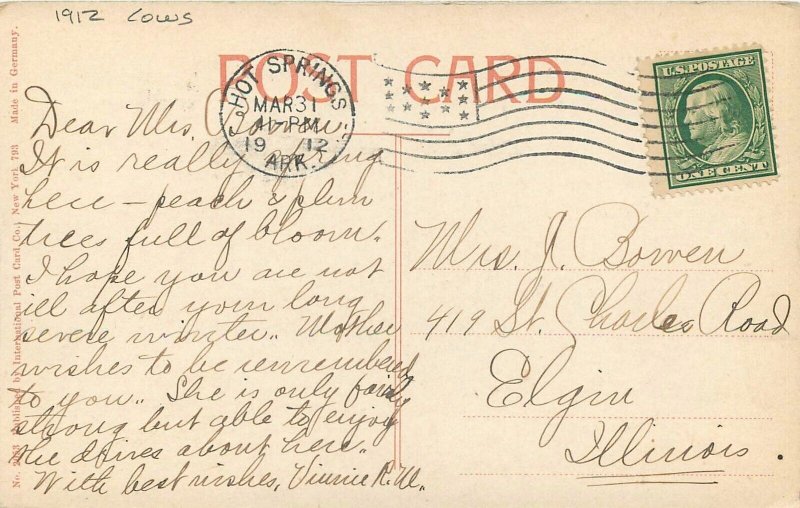 1912 Cows
POST CARD
HOT SPRINGS
MAR 31
4 - PM
1912
ARK.
U.S. POSTAGE
ONE CENT
Dear Mrs.
It is really spring
here - peach & plum
trees full of bloom.
I hope you are not
ill after your long
severe winter. Mother
wishes to be remembered
to you. She is only fairly
strong but able to enjoy
the drives about here.
With best wishes, Vinnie R. W.
Mrs. J. Bowen
419 St. Charles Road
Elgin
Illinois.
Published by International Post Card Co., New York 793 Made in Germany.